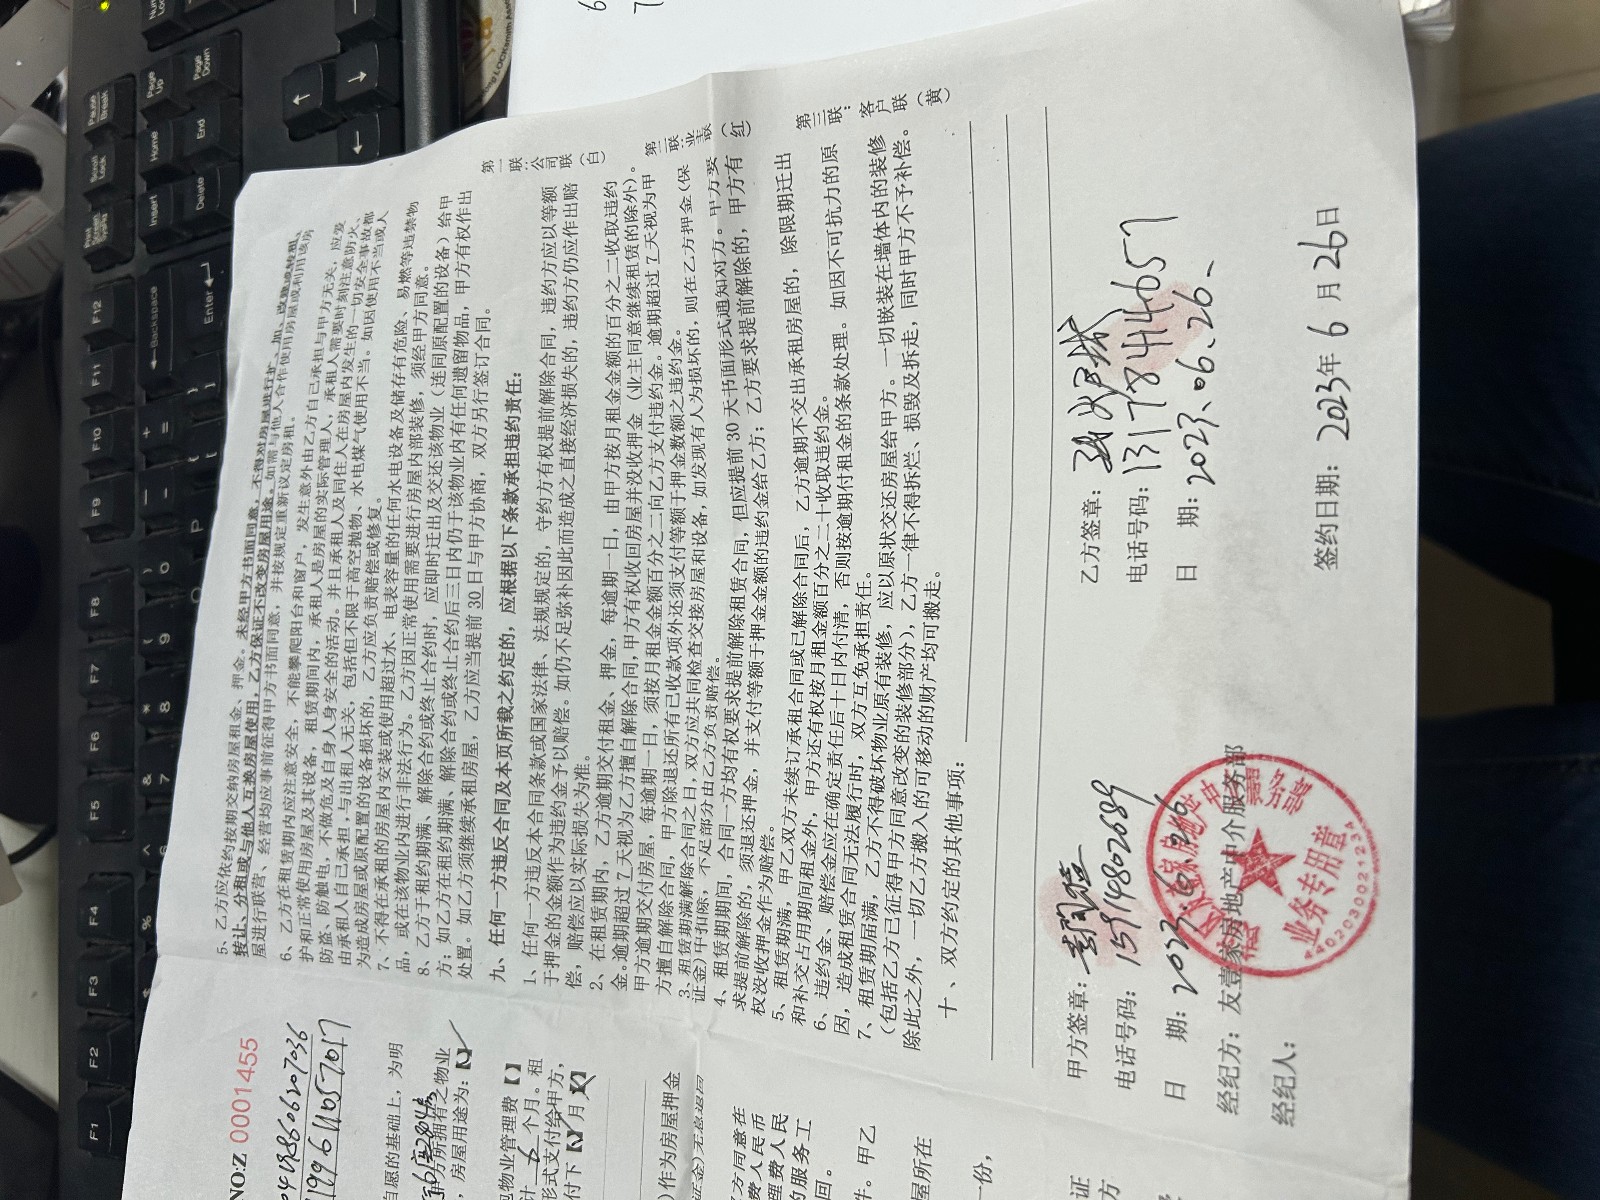 5、乙方应依约按期交纳房屋租金、押金。未经甲方书面同意，不得对房屋进行扩、加、改建或转租、
转让、分租或与他人互换房屋使用，乙方保证不改变房屋用途。如需与他人合作使用房屋或利用该房
屋进行联营、经营均应事前征得甲方书面同意，并按规定重新议定房租。
6、乙方在租赁期内应注意安全，不能攀爬阳台和窗户，发生意外由乙方自己承担与甲方无关，应爱
护和正常使用房屋及其设备，租赁期间内，承租人是房屋的实际管理人，承租人需要时刻注意防火、
防盗、防触电，不做危及自身人身安全的活动。并且承租人及同住人在房屋内发生的一切安全事故都
由承租人自己承担，与出租人无关，包括但不限于高空抛物、水电煤气使用不当。如因使用不当或人
为造成房屋或原配置的设备损坏的，乙方应负责赔偿或修复。
7、不得在承租的房屋内安装或使用超过水、电表容量的任何水电设备及储存有危险、易燃等违禁物
品，或在该物业内进行非法行为。乙方因正常使用需要进行房屋内部装修，须经甲方同意。
8、乙方于租约期满、解除合约或终止合约时，应即时迁出及交还该物业（连同原配置的设备）给甲
方；如乙方在租约期满、解除合约或终止合约后三日内仍于该物业内有任何遗留物品，甲方有权作出
处置。如乙方须继续承租房屋，乙方应当提前 30 日与甲方协商，双方另行签订合同。
九、任何一方违反合同及本页所载之约定的，应根据以下条款承担违约责任：
1、任何一方违反本合同条款或国家法律、法规规定的，守约方有权提前解除合同，违约方应以等额
于押金的金额作为违约金予以赔偿。如仍不足弥补因此而造成之直接经济损失的，违约方仍应作出赔
偿，赔偿应以实际损失为准。
2、在租赁期内，乙方逾期交付租金、押金，每逾期一日，由甲方按月租金金额的百分之二收取违约
金。逾期超过 7 天视为乙方擅自解除合同，甲方有权收回房屋并没收押金（业主同意继续租赁的除外）。
甲方逾期交付房屋，每逾期一日，须按月租金金额百分之二向乙方支付违约金。逾期超过 7 天视为甲
方擅自解除合同，甲方除退还所有已收款项外还须支付等额于押金数额之违约金。
3、租赁期满解除合同之日，双方应共同检查交接房屋和设备，如发现有人为损坏的，则在乙方押金（保
证金）中扣除，不足部分由乙方负责赔偿。
4、租赁期期间，合同一方均有权要求提前解除租赁合同，但应提前 30 天书面形式通知对方。甲方要
求提前解除的，须退还押金，并支付等额于押金金额的违约金给乙方；乙方要求提前解除的，甲方有
权没收押金作为赔偿。
5、租赁期满，甲乙双方未续订承租合同或已解除合同后，乙方逾期不交出承租房屋的，除限期迁出
和补交占用期间租金外，甲方还有权按月租金额百分之二十收取违约金。
6、违约金、赔偿金应在确定责任后十日内付清，否则按逾期付租金的条款处理。如因不可抗力的原
因，造成租赁合同无法履行时，双方互免承担责任。
7、租赁期届满，乙方不得破坏物业原有装修，应以原状交还房屋给甲方。一切嵌装在墙体内的装修
（包括乙方已征得甲方同意改变的装修部分），乙方一律不得拆烂、损毁及拆走，同时甲方不予补偿。
除此之外，一切乙方搬入的可移动的财产均可搬走。
十、双方约定的其他事项：
甲方签章：
电话号码：15914802689
日 期：2023.6.26
经纪方：友壹家房地产中介服务部
经纪人：
乙方签章：
电话号码：13178414057
日 期：2023.06.26.
签约日期：2023年 6 月 26日
业务专用章
第一联：公司联（白）
第二联：业主联（红）
第三联：客户联（黄）
NO:Z 0001455
自愿的基础上，为明
方所拥有之物业
，房屋用途为：【
物业管理费【】
计 6 个月。租
形式支付给甲方，
付下【】月
）作为房屋押金
方同意在
费人民币
理费人民
的服务工
回。
件。甲乙
屋所在
一份，
Pause Break
Scroll Lock
Print Screen SysRq
Page Up
Page Down
Home
End
Insert
Delete
Backspace
Enter
F12
F11
F10
F9
F8
F7
F6
F5
F4
F3
F2
F1